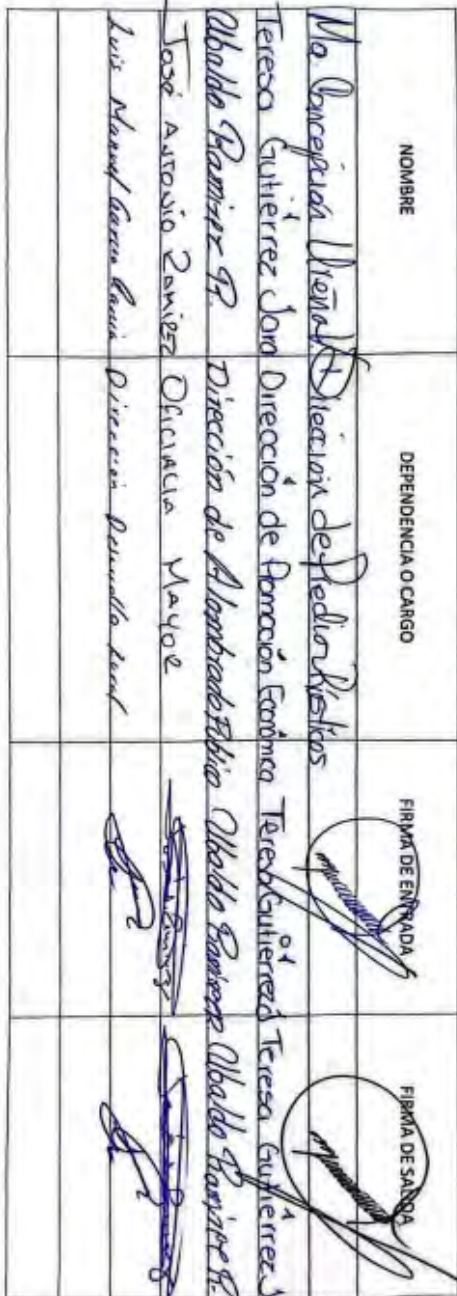 NOMBRE DEPENDENCIA O CARGO FIRMA DE ENTRADA FIRMA DE SALIDA
Ma. Concepción Ureña Dirección de Predios Rústicos
Teresa Gutiérrez Jara Dirección de Promoción Económica Teresa Gutierrez J Teresa Gutierrez J
Ubaldo Ramirez R. Dirección de Alumbrado Público Ubaldo Ramirez Ubaldo Ramirez R.
José Antonio Ramirez Oficialia Mayor
Luis Manuel Garcia Dirección Desarrollo Local